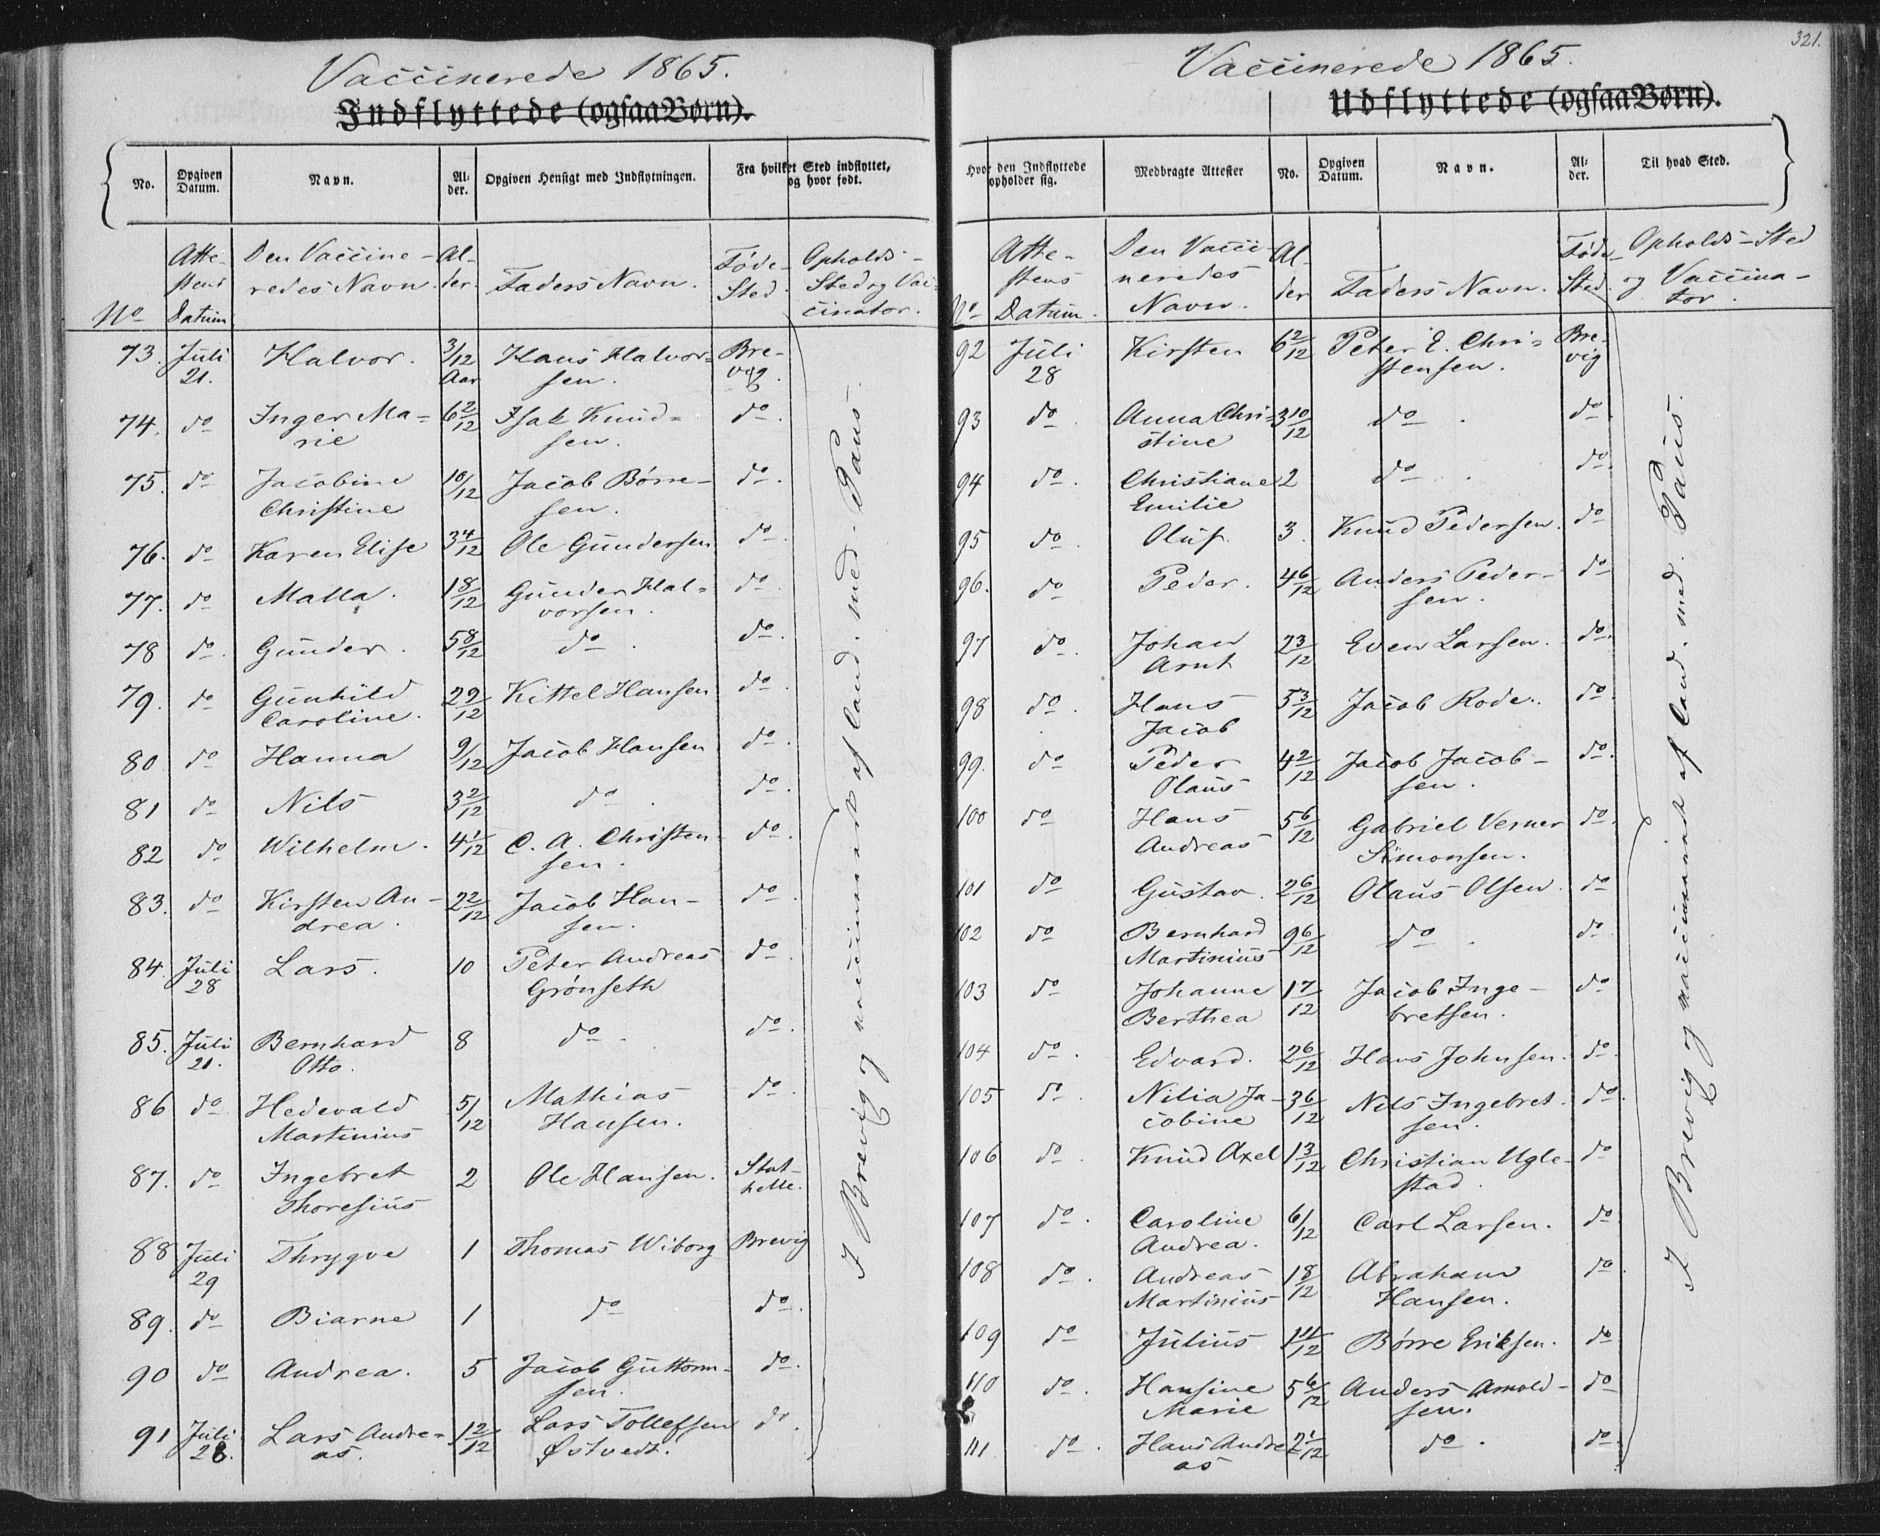 Vaccinerede 1865.
Indflyttede (ogsaa Børn).
No.
Opgiven Datum.
Navn.
Alder.
Opgiven Hensigt med Indflytningen.
Fra hvilket Sted indflyttet, og hvor født.
No Attestens Datum
Den Vaccineredes Navn
Alder.
Faders Navn.
Føde-Sted
Opholds-Sted og Vaccinator.
73. Juli 21. Halvor. 3/12 Aar Hans Halvorsen. Brevig.
74. do Inger Marie 6 2/12 Isak Knudsen. do
75. do Jacobine Christine 10/12 Jacob Børresen. do
76. do Karen Elise 3 4/12 Ole Gundersen do
77. do Malla. 1 8/12 Gunder Halvorsen. do
78 do Gunder. 5 8/12 do do
79. do Gunhild Caroline. 2 2/12 Kittel Hansen do
80 do Hanna 9/12 Jacob Hansen do
81 do Nils 3 2/12 do do
82 do Wilhelm. 4 1/12 C. A. Christensen. do
83. do Kirsten Andrea. 2 2/12 Jacob Hansen. do
84. Juli 28 Lars. 10 Peter Andreas Grønseth do
85. Juli 21. Bernhard Otto. 8 do do
86 do Hedevald Martinius 5/12 Mathias Hansen. do
87. do Ingebret Thoresius 2 Ole Hansen. Stathelle.
88 Juli 29 Thrygve 1 Thomas Wiborg Brevig
89. do Biarne 1 do do
90 do Andrea. 5 Jacob Guttormsen. do
91 Juli 28. Lars Andreas. 1 2/12 Lars Tollefsen Østvedt. do
I Brevig og vaccinerede af land. med. Paus.
321.
Vaccinerede 1865.
Udflyttede (ogsaa Børn).
Hvor den Indflyttede opholder sig.
Medbragte Attester
No.
Opgiven Datum.
Navn.
Alder.
Til hvad Sted.
No Attestens Datum.
Den Vaccineredes Navn.
Alder
Faders Navn.
Føde-Sted.
Opholds-Sted og Vaccinator.
92 Juli 28 Kirsten 6 2/12 Peter E. Christensen. Brevig
93 do Anna Christine 3 10/12 do do
94 do Christiane Emilie 2 do do
95 do Oluf. 3. Knud Pedersen. do
96. do Peder. 4 6/12 Anders Pedersen. do
97 do Johan Arnt 2 3/12 Even Larsen. do
98 do Hans Jacob 5 3/12 Jacob Rode. do
99. do Peder Olaus 4 2/12 Jacob Jacobsen. do
100 do Hans Andreas 5 6/12 Gabriel Verner Simonsen. do
101 do Gustav. 2 6/12 Olaus Olsen. do
102 do Bernhard Martinius 9 6/12 do do
103 do Johanne Berthea 1 7/12 Jacob Ingebretsen. do
104 do Edvard. 2 6/12 Hans Johnsen. do
105 do Nilia Jacobine 3 6/12 Nils Ingebretsen. do
106 do Knud Axel 1 3/12 Christian Uglestad. do
107 do Caroline Andrea. 6/12 Carl Larsen. do
108 do Andreas Martinius 1 8/12 Abraham Hansen. do
109 do Julius 1 11/12 Børre Eriksen. do
110 do Hansine Marie 5 6/12 Anders Arnoldsen. do
111 do Hans Andreas 2 1/12 do do
I Brevig og vaccinerede af land. med. Paus.